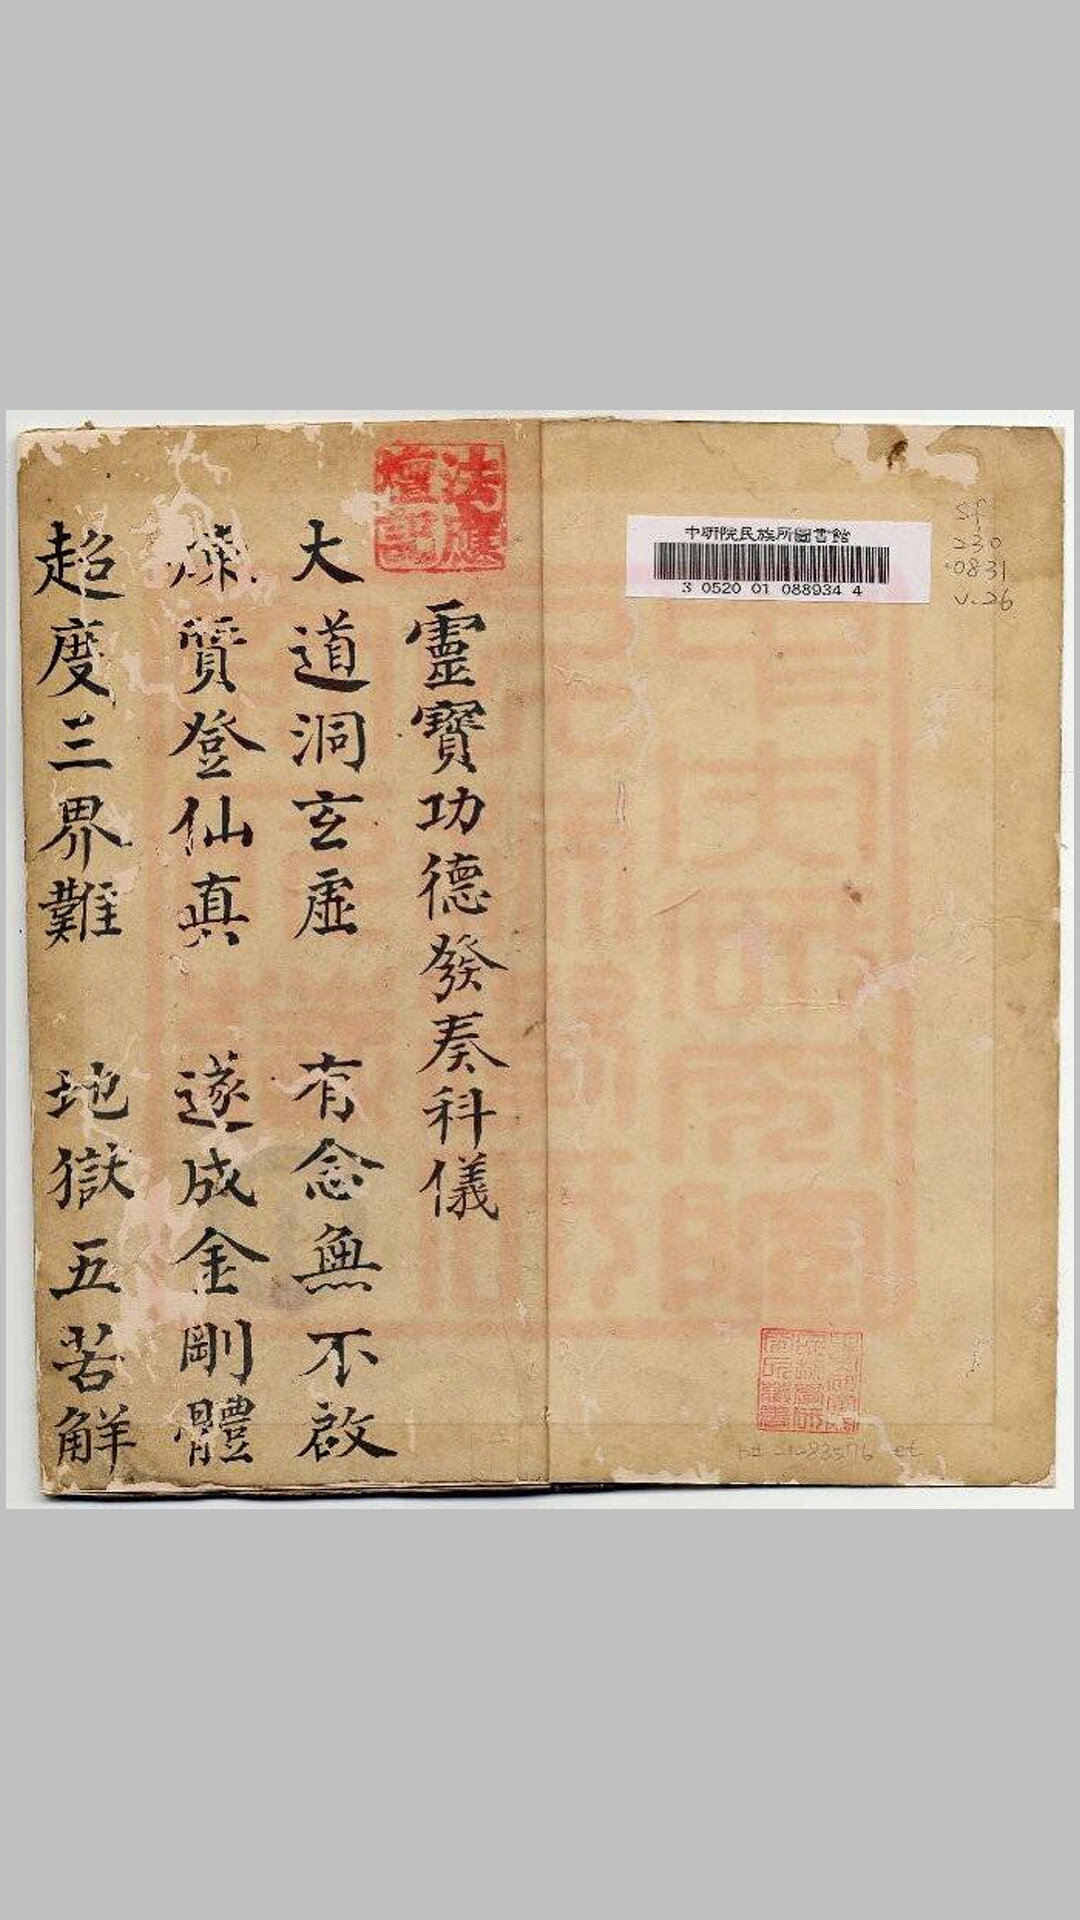 中研院民族所圖書館
3 0520 01 088934 4
SF
230
.0831
v.26
法應
壇記
靈寶功德發奏科儀
大道洞玄虛 有念無不啟
煉質登仙真 遂成金剛體
超度三界難 地獄五苦解